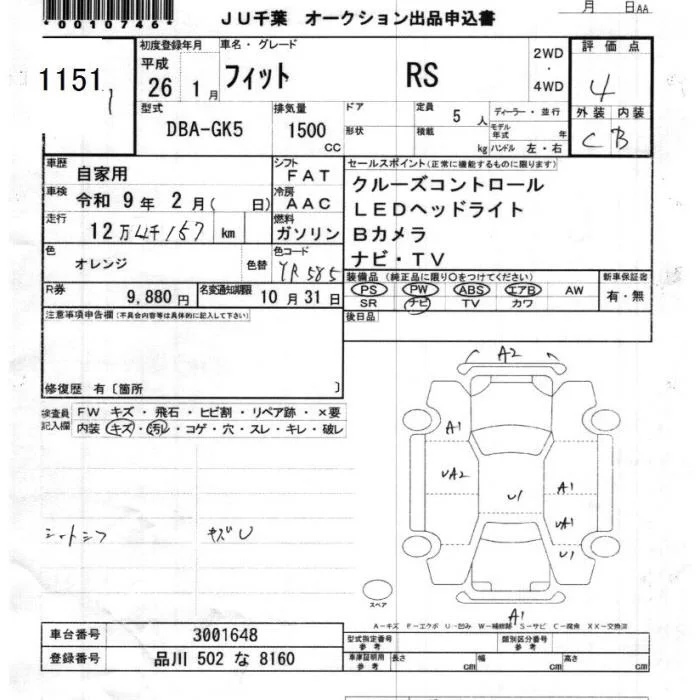 *0010746*
JU千葉 オークション出品申込書
月 日AA
1151
初度登録年月
平成
26 1月
車名・グレード
フィット RS
2WD
・
4WD
評価点
4
外装 内装
C B
型式
DBA-GK5
排気量
1500
CC
ドア
形状
定員
5 人
積載
kg
ディーラー・並行
モデル年式 年
ハンドル 左・右
車歴
自家用
シフト
FAT
車検
令和 9年 2月( 日)
冷房
AAC
走行
12万4千157 km
燃料
ガソリン
色
オレンジ
色替
色コード
YR585
R券
9,880円
名変通知期限
10月31日
セールスポイント(正常に機能するものに限ります)
クルーズコントロール
LEDヘッドライト
Bカメラ
ナビ・TV
装備品(純正品に限り○をつけてください)
PS PW ABS エアB AW
SR ナビ TV カワ
新車保証書
有・無
後日品
注意事項申告欄(不具合内容等は具体的に記入して下さい)
修復歴 有〔箇所 〕
検査員記入欄
FW キズ・飛石・ヒビ割・リペア跡・×要
内装 キズ・汚レ・コゲ・穴・スレ・キレ・破レ
シートシワ キズU
A2
A1
UA2
U1
A1
UA1
U1
A1
スペア
A−キズ F−エクボ U−凹み W−補修跡 S−サビ C−腐食 XX−交換済
車台番号 3001648
登録番号 品川 502 な 8160
型式指定番号
参考
類別区分番号
参考
車庫証明用
参考
長さ cm
幅 cm
高さ cm